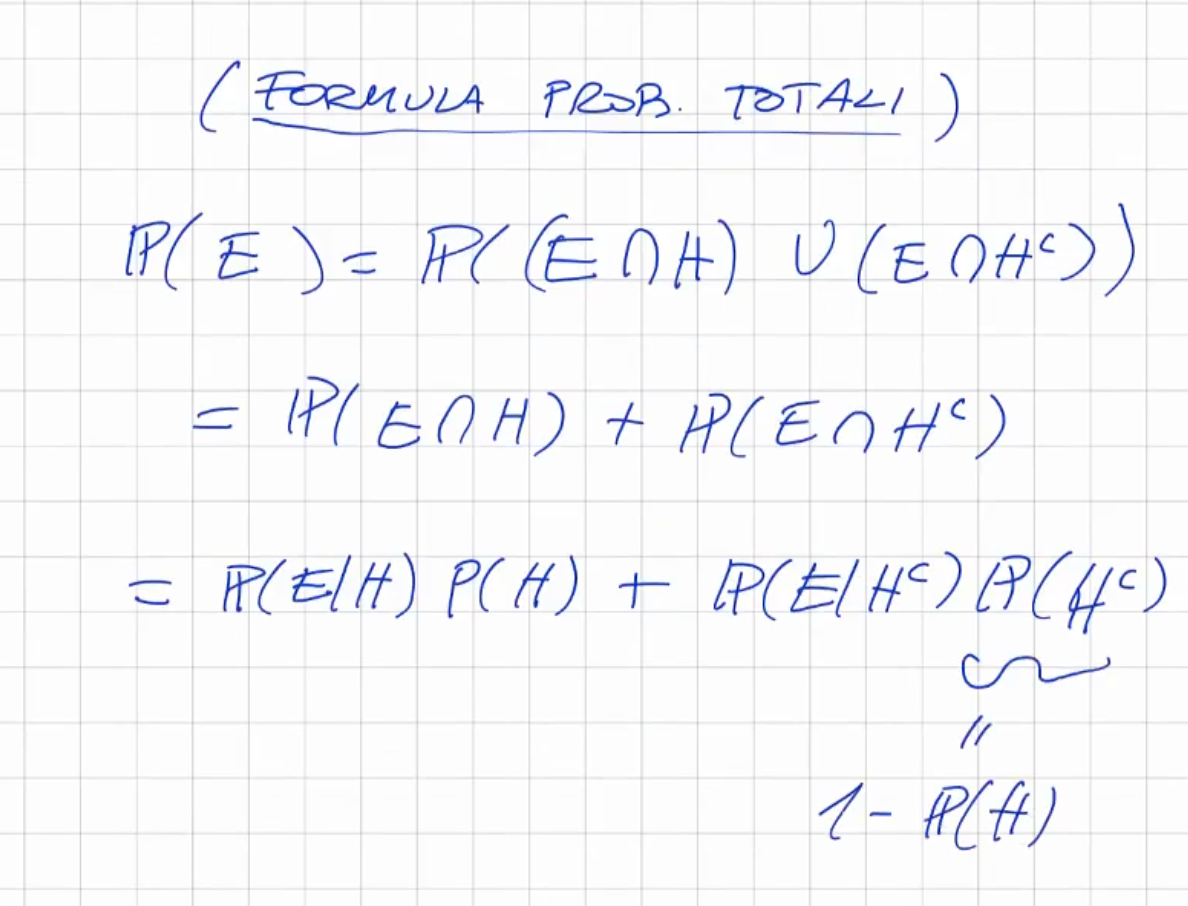 (FORMULA PROB. TOTALI)
ℙ(E) = ℙ((E ∩ H) ∪ (E ∩ Hᶜ))
= ℙ(E ∩ H) + ℙ(E ∩ Hᶜ)
= ℙ(E|H) P(H) + ℙ(E|Hᶜ) ℙ(Hᶜ)
=
1 - ℙ(H)